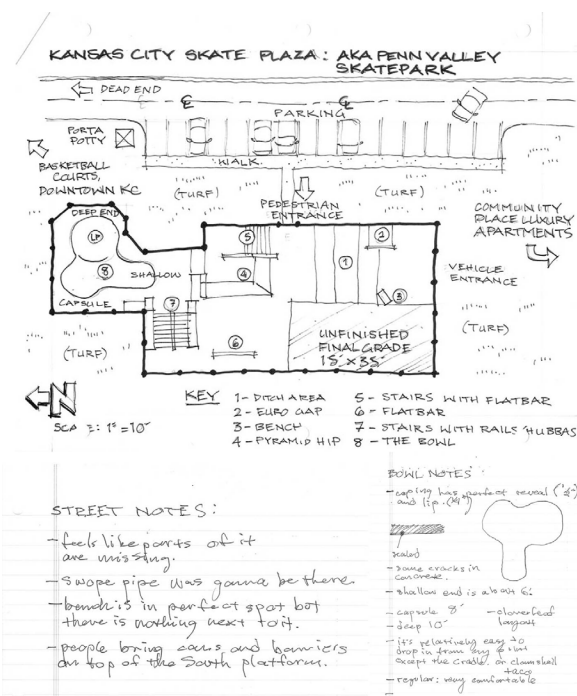 KANSAS CITY SKATE PLAZA: AKA PENN VALLEY
SKATEPARK
DEAD END
PARKING
PORTA
POTTY
WALK
BASKETBALL
COURTS,
DOWNTOWN KC
(TURF)
(TURF)
PEDESTRIAN
ENTRANCE
COMMUNITY
PLACE LUXURY
APARTMENTS
DEEP END
8
SHALLOW
CAPSULE
5
4
1
2
3
7
6
VEHICLE
ENTRANCE
UNFINISHED
FINAL GRADE
15' x 35'
(TURF)
(TURF)
N
1" = 10'
KEY
1 - DITCH AREA
2 - EURO GAP
3 - BENCH
4 - PYRAMID HIP
5 - STAIRS WITH FLATBAR
6 - FLATBAR
7 - STAIRS WITH RAILS HUBBAS
8 - THE BOWL
STREET NOTES:
- feels like parts of it
are missing.
- Swope pipe was gonna be there.
- bench is in perfect spot but
there is nothing next to it.
- people bring cans and barriers
on top of the South platform.
BOWL NOTES
- coping has perfect reveal
and lip.
sealed
- some cracks in
concrete.
- shallow end is about 6'
- capsule 8'
- deep 10'
- cloverleaf
layout
- it's relatively easy to
drop in from any
except the cradle, or clamshell
taco
- regular: very comfortable